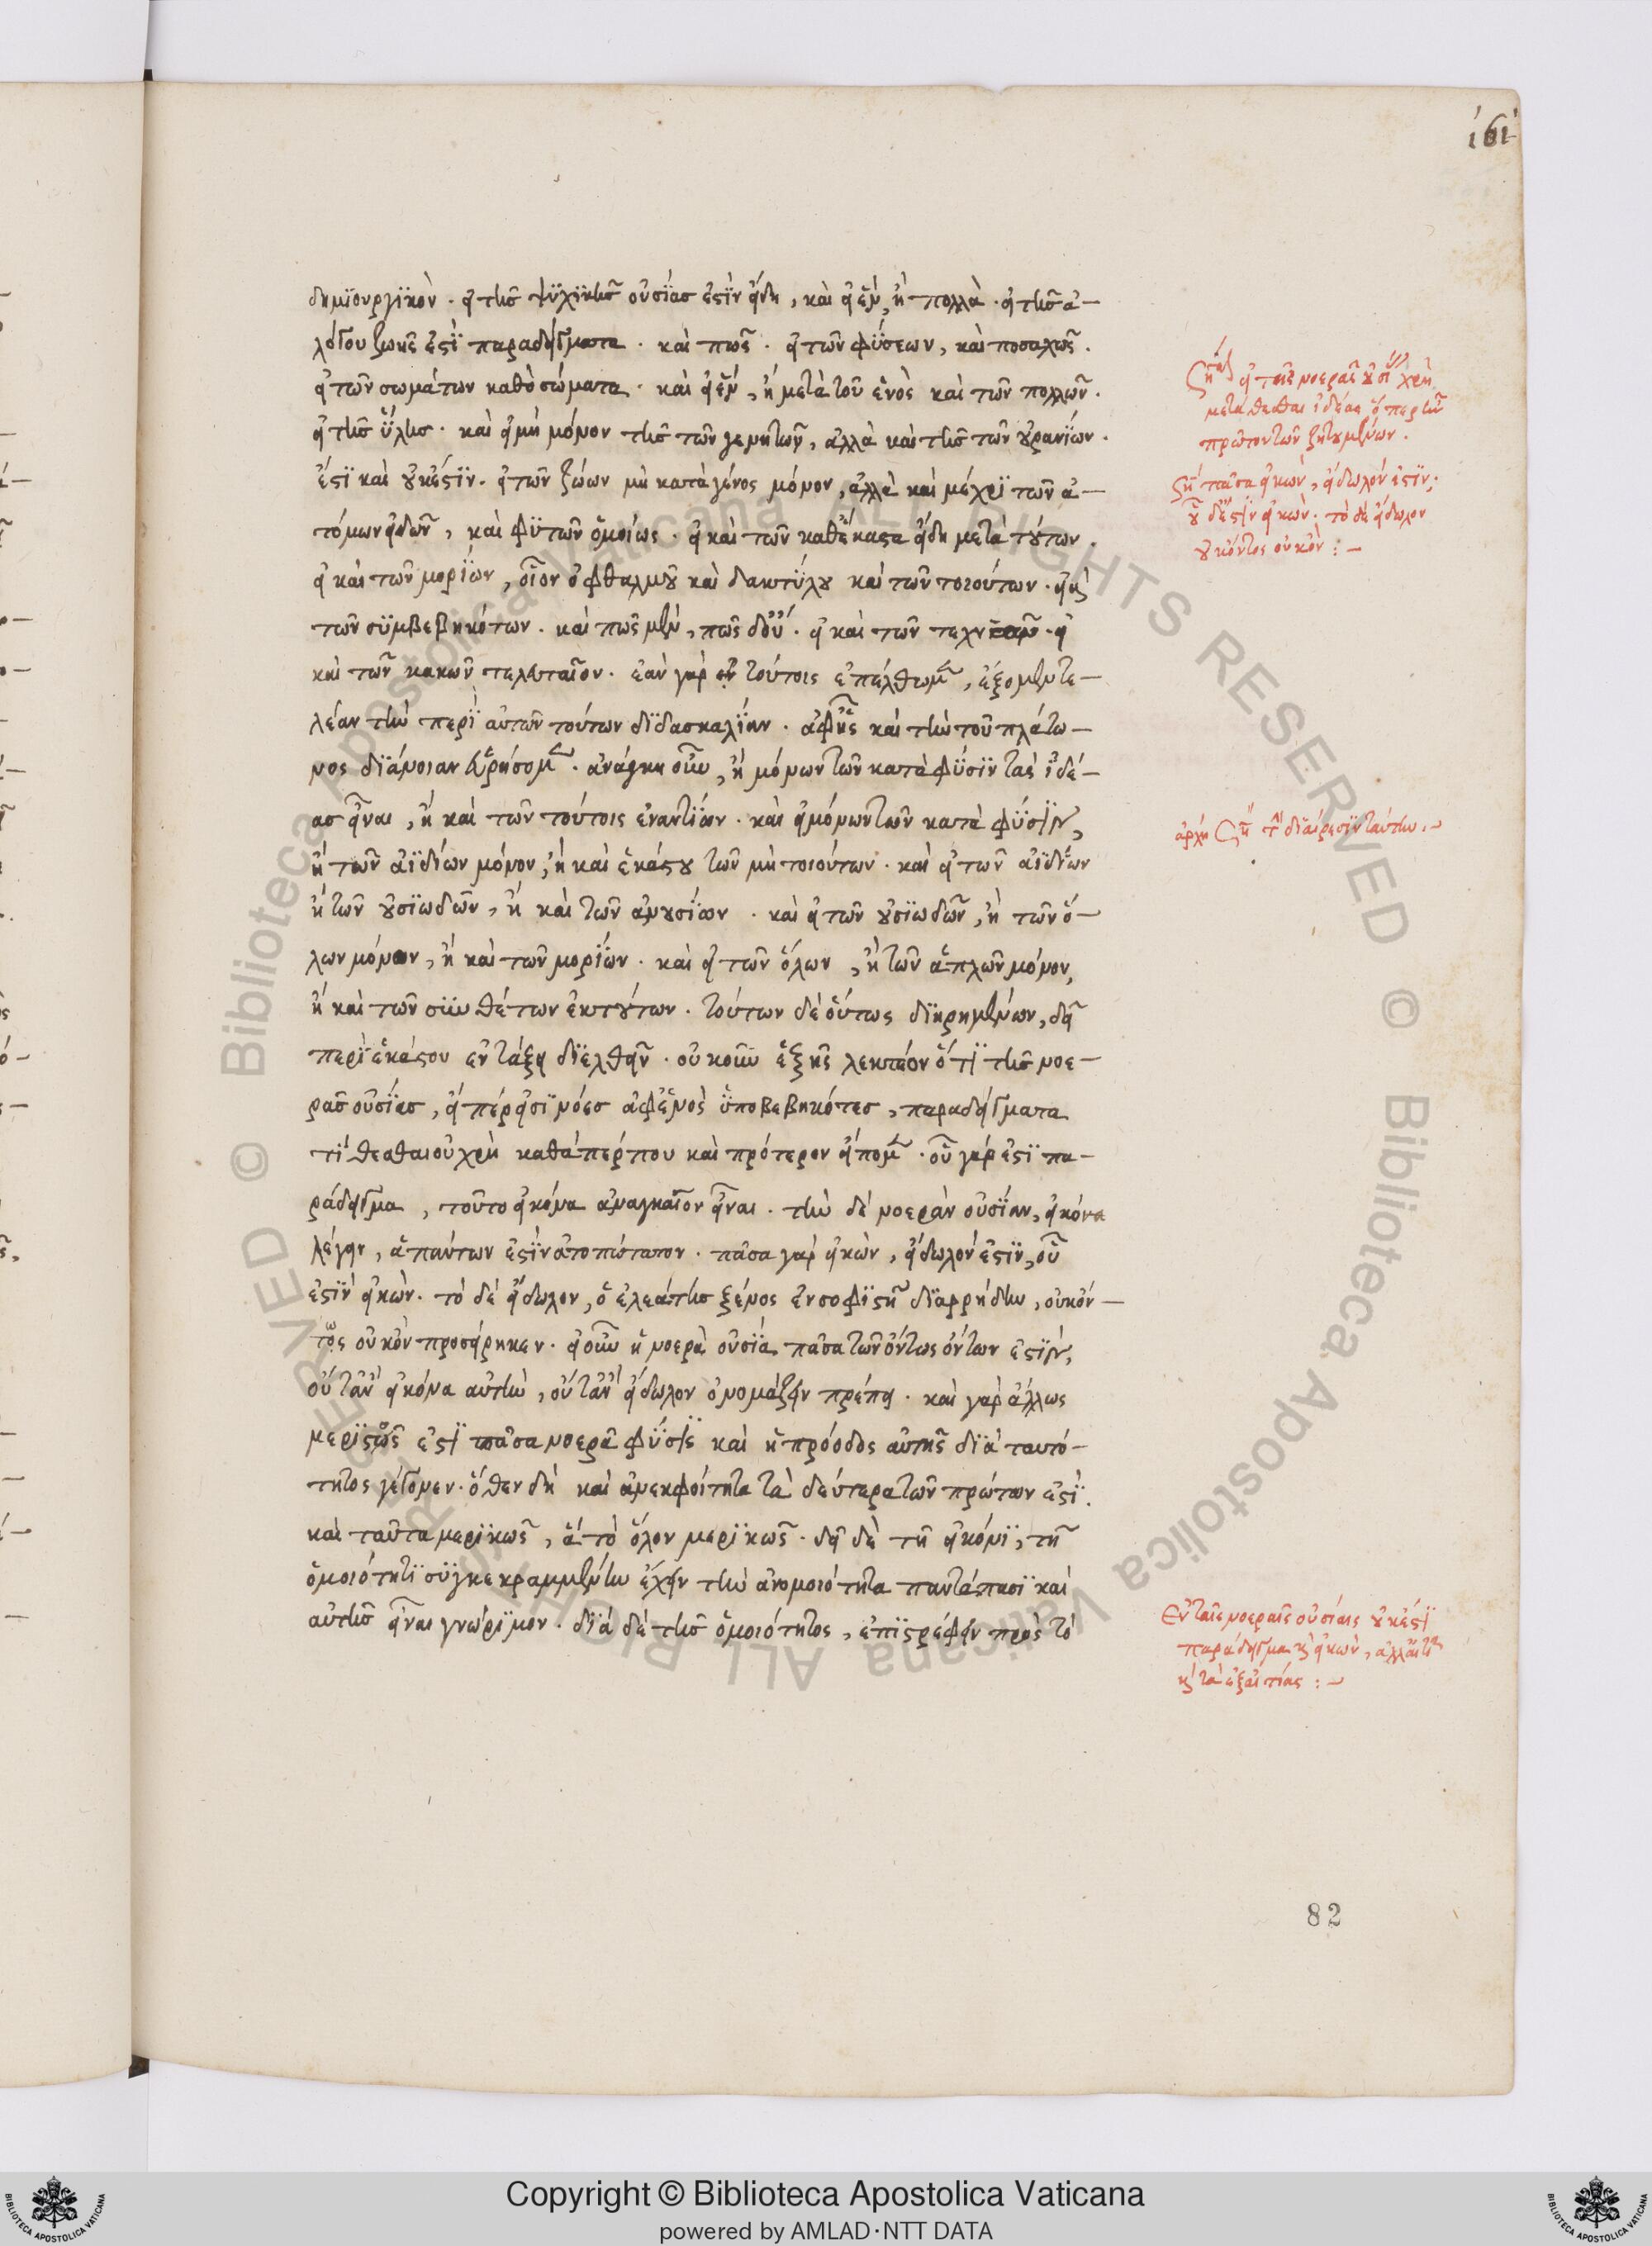 ιϛι
δημιουργικὸν . εἰ τῆς ψυχικῆς οὐσίας ἐστὶν εἴδη , καὶ εἰ ἕν , ἢ πολλὰ . εἰ τῆς ἀ–
λόγου ζωῆς ἐστὶ παραδείγματα . καὶ πῶς . εἰ τῶν φύσεων , καὶ ποσαχῶς .
εἰ τῶν σωμάτων καθὸ σώματα . καὶ εἰ ἕν , ἢ μετὰ τοῦ ἑνὸς καὶ τῶν πολλῶν .
εἰ τῆς ὕλης . καὶ εἰ μὴ μόνον τῆς τῶν γενητῶν , ἀλλὰ καὶ τῆς τῶν οὐρανίων .
ἔστι καὶ οὐκ ἔστιν . εἰ τῶν ζώων μὴ κατὰ γένος μόνον , ἀλλὰ καὶ μέχρι τῶν ἀ–
τόμων εἰδῶν , καὶ φυτῶν ὁμοίως . εἰ καὶ τῶν καθέκαστα εἴδη μετὰ τούτων .
εἰ καὶ τῶν μορίων , οἷον ὀφθαλμοῦ καὶ δακτύλου καὶ τῶν τοιούτων . εἰ καὶ
τῶν συμβεβηκότων . καὶ πῶς μὲν , πῶς δ' οὔ . εἰ καὶ τῶν τεχνητῶν . εἰ
καὶ τῶν κακῶν τελευταῖον . ἐὰν γὰρ ἐν τούτοις ἐπέλθωμεν , ἕξομεν τε–
λέαν τὴν περὶ αὐτῶν τούτων διδασκαλίαν . ἀφ' ἧς καὶ τὴν τοῦ πλάτω–
νος διάνοιαν εὑρήσομεν . ἀνάγκη οὖν , ἢ μόνων τῶν κατὰ φύσιν τὰς ἰδέ–
ας εἶναι , ἢ καὶ τῶν τούτοις ἐναντίων . καὶ εἰ μόνων τῶν κατὰ φύσιν ,
ἢ τῶν ἀϊδίων μόνον , ἢ καὶ ἑκάστου τῶν μὴ τοιούτων . καὶ εἰ τῶν ἀϊδίων
ἢ τῶν οὐσιωδῶν , ἢ καὶ τῶν ἀνουσίων . καὶ εἰ τῶν οὐσιωδῶν , ἢ τῶν ὅ–
λων μόνων , ἢ καὶ τῶν μορίων . καὶ εἰ τῶν ὅλων , ἢ τῶν ἁπλῶν μόνον ,
ἢ καὶ τῶν συνθέτων ἐκ τούτων . τούτων δὲ οὕτως διῃρημένων , δεῖ
περὶ ἑκάστου ἐν τάξει διελθεῖν . οὐκοῦν ἑξῆς λεκτέον ὅτι τῆς νοε–
ρᾶς οὐσίας , εἴπερ εἰσὶ νόες ἀφ' ἑνὸς ὑποβεβηκότες , παραδείγματα
τίθεσθαι οὐ χρὴ καθάπερ που καὶ πρότερον εἴπομεν . οὗ γάρ ἐστι πα–
ράδειγμα , τοῦτο εἰκόνα ἀναγκαῖον εἶναι . τὴν δὲ νοερὰν οὐσίαν , εἰκόνα
λέγειν , ἁπάντων ἐστὶν ἀτοπώτατον . πᾶσα γὰρ εἰκὼν , εἴδωλόν ἐστιν , οὗ
ἐστὶν εἰκών . τὸ δὲ εἴδωλον , ὁ ἐλεάτης ξένος ἐν σοφιστῇ διαρρήδην , οὐκ ὄν–
τως οὐκ ὂν προσείρηκεν . εἰ οὖν ἡ νοερὰ οὐσία πᾶσα τῶν ὄντως ὄντων ἐστὶν ,
οὔτ' ἂν εἰκόνα αὐτὴν , οὔτ' ἂν εἴδωλον ὀνομάζειν πρέπει . καὶ γὰρ ἄλλως
μεριστῶς ἐστὶ πᾶσα νοερὰ φύσις καὶ ἡ πρόοδος αὐτῆς διὰ ταυτό–
τητος γέγονεν . ὅθεν δὴ καὶ ἀνεκφοίτητα τὰ δεύτερα τῶν πρώτων ἐστί .
καὶ ταῦτα μερικῶς , ἃ τὸ ὅλον μερικῶς . δεῖ δὲ τῇ εἰκόνι , τῇ
ὁμοιότητι συγκεκραμμένην ἔχειν τὴν ἀνομοιότητα παντάπασι καὶ
αὐτῆς εἶναι γνώριμον . διὰ δὲ τῆς ὁμοιότητος , ἐπιστρέφειν πρὸς τὸ
μετατίθεσθαι ἰδέας ὅπερ ἦν
πρῶτον τῶν ζητουμένων .
ὅτι πᾶσα εἰκών , εἴδωλόν ἐστιν ,
οὗ δ' ἐστὶν εἰκών . τὸ δὲ εἴδωλον
οὐκ ὄντος οὐκ ὄν : –
ἀρχὴ διαίρεσιν ταύτην . –
Ἐν ταῖς νοεραῖς οὐσίαις οὐκ ἔστι
παράδειγμα καὶ εἰκὼν , ἀλλ' αἴτια
καὶ τὰ ἐξ αἰτίας : –
82
Copyright © Biblioteca Apostolica Vaticana
powered by AMLAD·NTT DATA